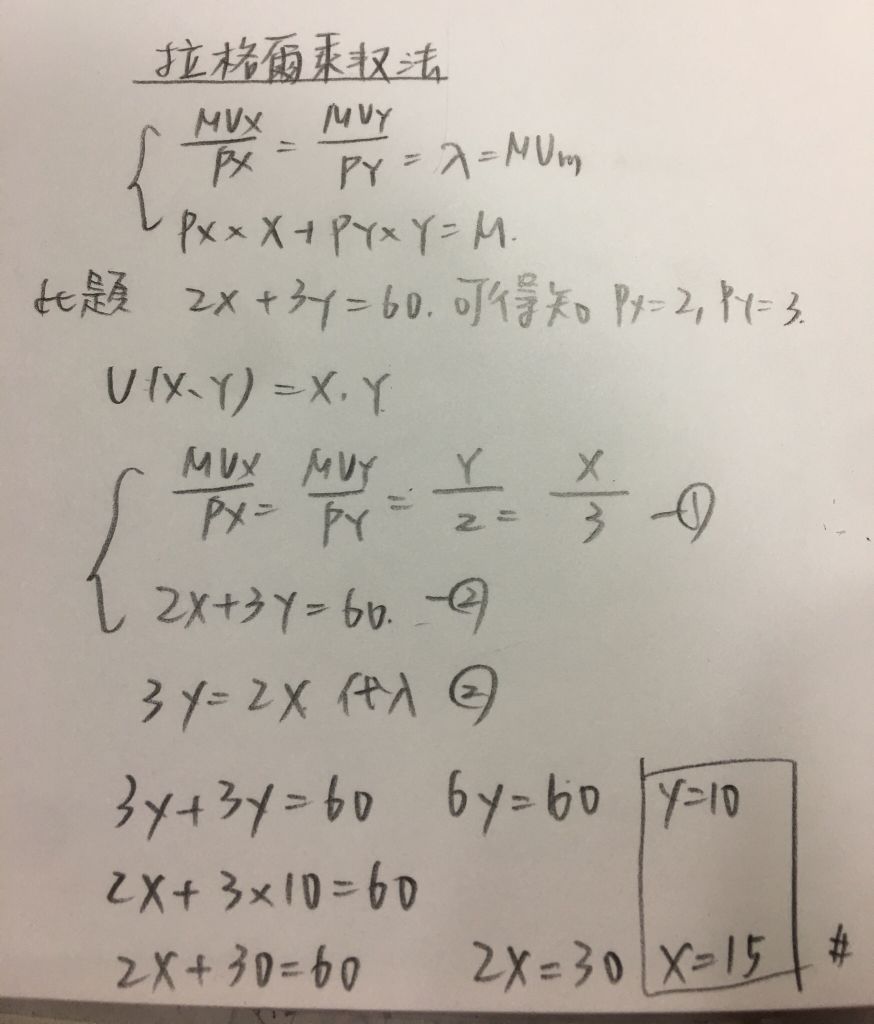 拉格爾乘权法
MUX/PX = MUY/PY = λ = MUm
PX × X + PY × Y = M.
此題 2X + 3Y = 60. 可得知 PX = 2, PY = 3.
U(X、Y) = X . Y
MUX/PX = MUY/PY = Y/2 = X/3 —①
2X + 3Y = 60. —②
3Y = 2X 代入 ②
3Y + 3Y = 60 6Y = 60 Y = 10
2X + 3 × 10 = 60
2X + 30 = 60 2X = 30 X = 15 #